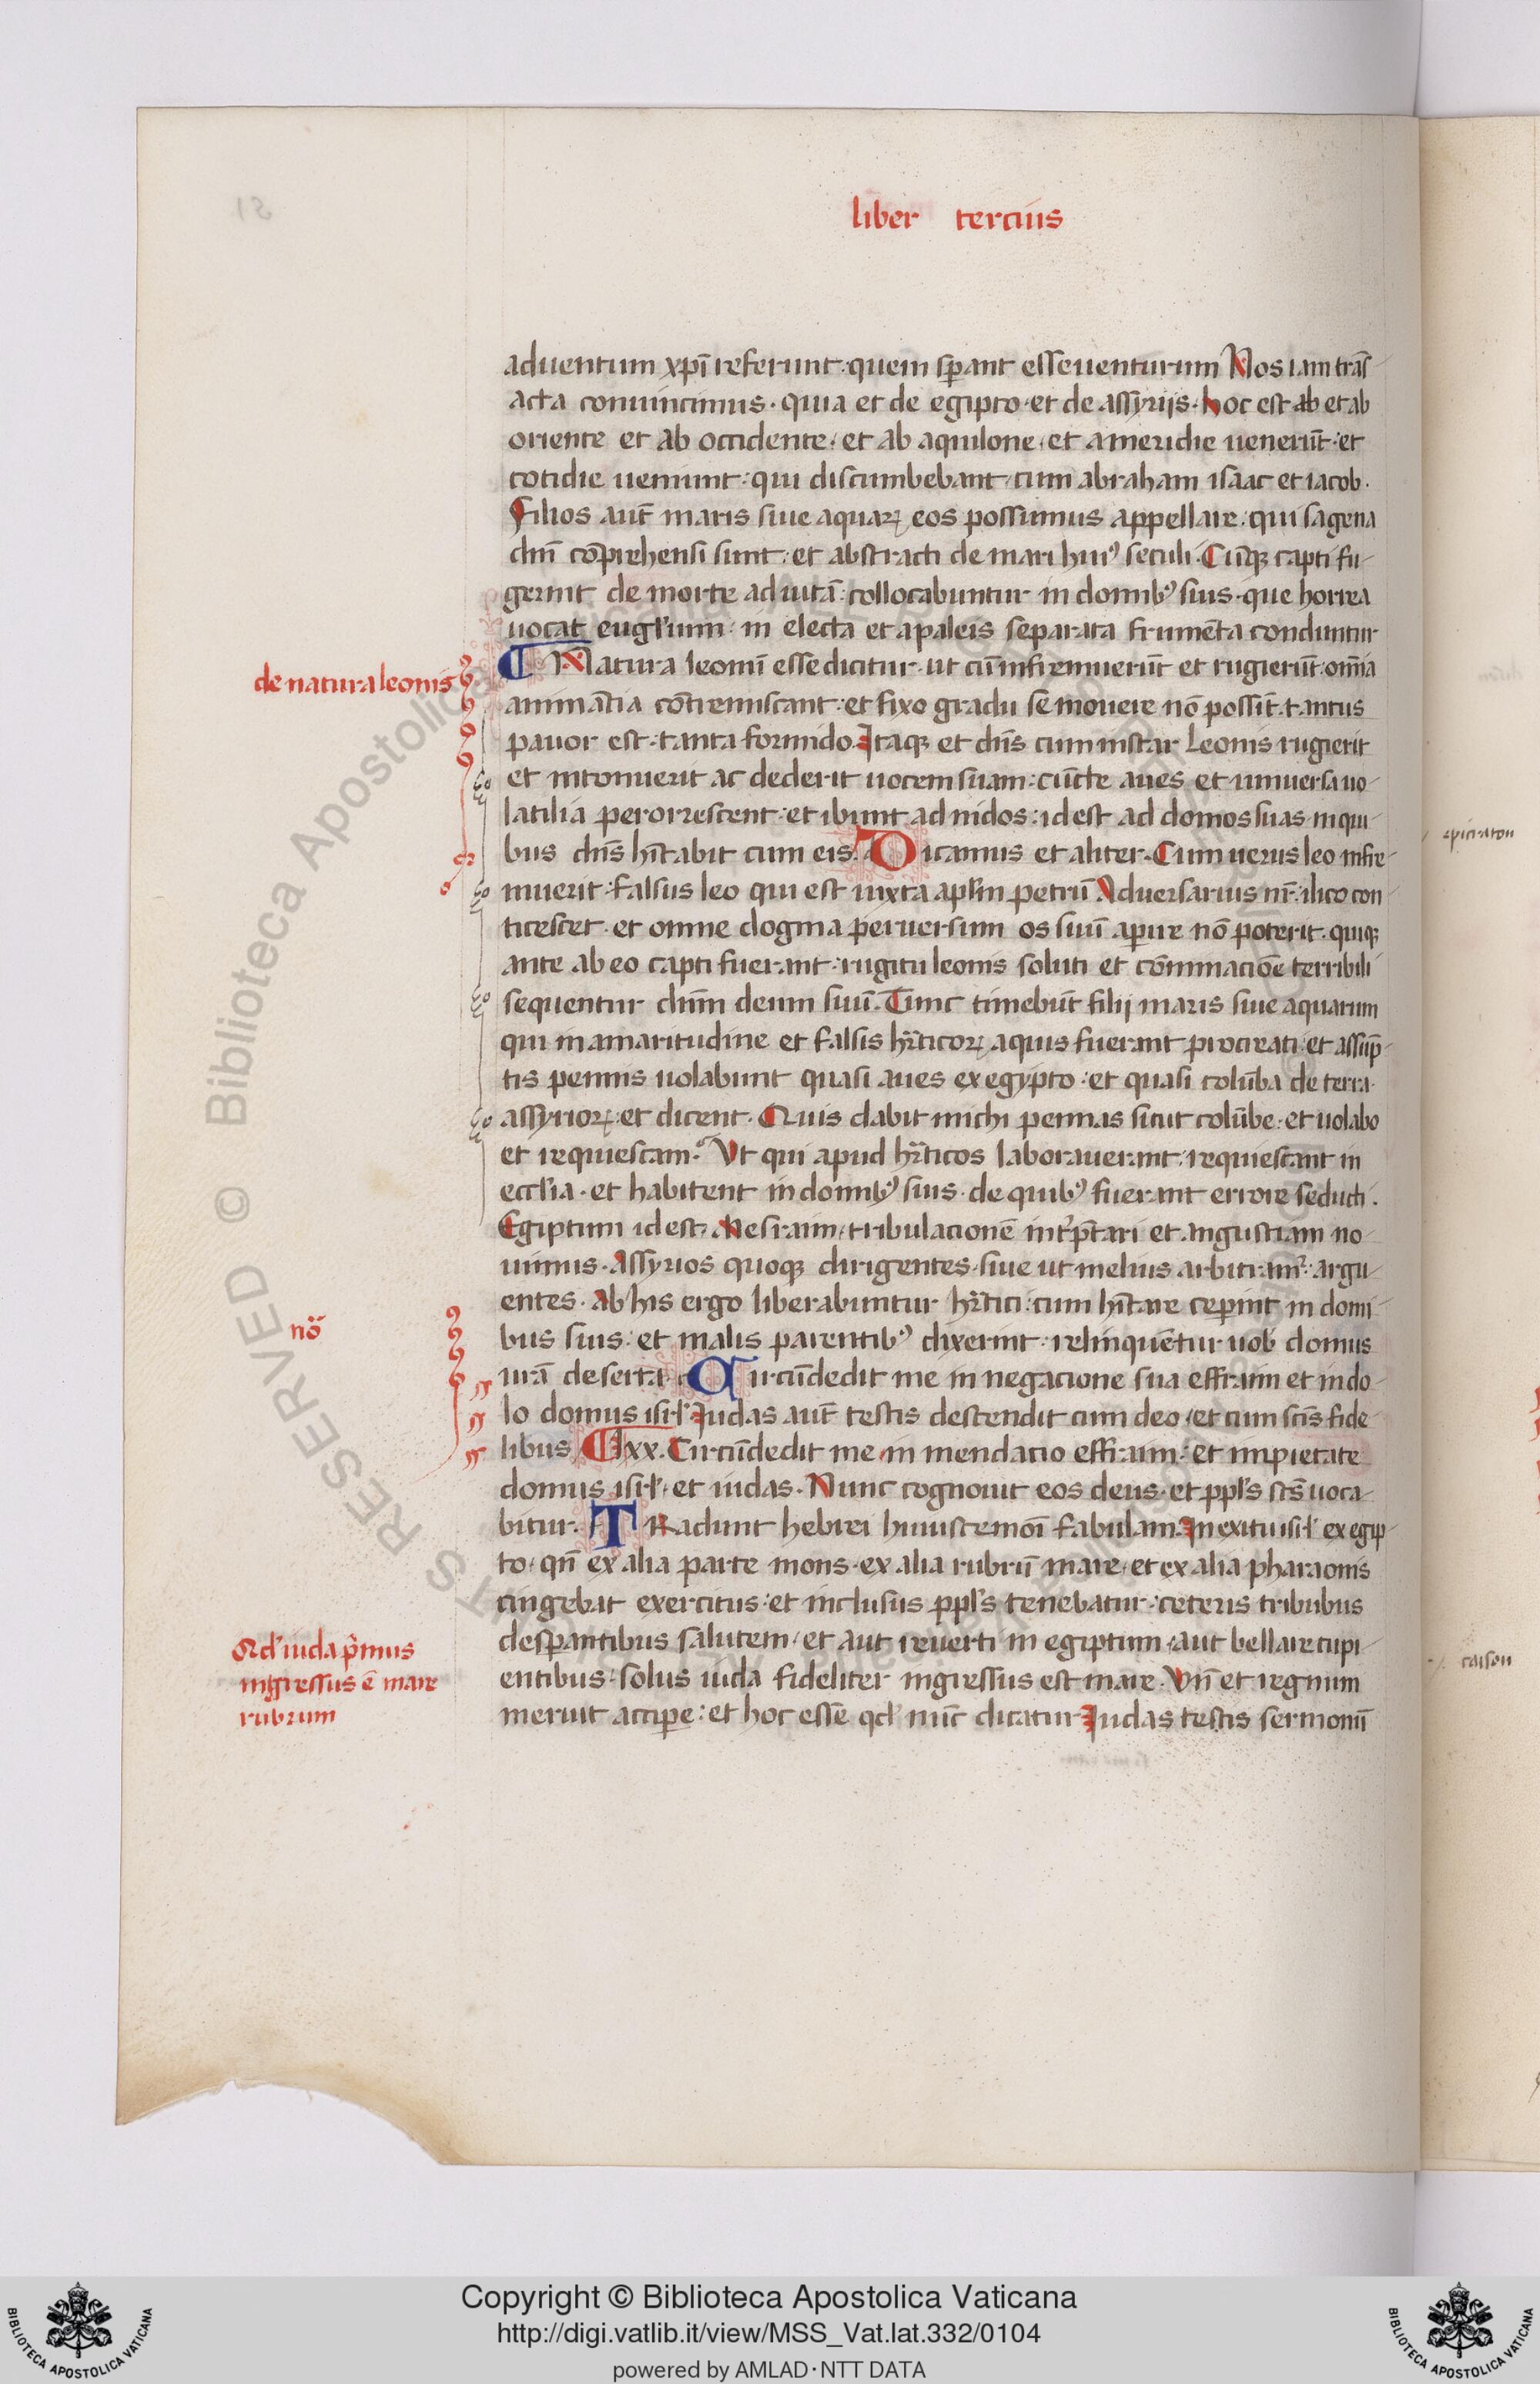 liber tercius
aduentum xp̄i referunt· quem sp̄ant esse uenturum Nos iam trās
acta conuincimus· quia et de egipto· et de assyrijs· hoc est ab et ab
oriente et ab occidente· et ab aquilone· et a meridie uenerūt· et
cotidie ueniunt· qui discumbebant cum abraham isaac et iacob·
Filios aut̄ maris siue aquaꝝ eos possumus appellare· qui sagena
dn̄i cōprehensi sunt· et abstracti de mari huiꝰ seculi· Cūqꝫ capti fu-
gerint de morte ad uitā· collocabuntur in domibꝰ suis· que horrea
uocat eugl̄ium· in electa et a paleis separata frumēta conduntur
¶ Natura leonū esse dicitur· ut cū infremuerūt et rugierūt· om̄ia
animātia cōtremiscant· et fixo gradu se mouere nō possīt· tantus
pauor est· tanta formido Itaqꝫ et dn̄s cum instar leonis rugierit
et intonuerit ac dederit uocem suam· cūcte aues et uniuersa uo-
latilia perorrescent· et ibunt ad nidos· id est ad domos suas in qui-
bus dn̄s hītabit cum eis· Dicamus et aliter· Cum uerus leo infre-
muerit· falsus leo qui est iuxta apl̄m petrū Aduersarius nr̄· ilico con
ticescet· et omne dogma peruersum os suū apire nō poterit· quiqꝫ
ante ab eo capti fuerant· rugitu leonis soluti et cōminacioē terribili
sequentur dn̄m deum suū· Tunc timebūt filij maris siue aquarum
qui in amaritudine et falsis hr̄ticoꝝ aquis fuerant procreati· et assūp-
tis pennis uolabunt quasi aues ex egypto· et quasi colūba de terra·
assyrioꝝ· et dicent· Quis dabit michi pennas sicut colūbe· et uolabo
et requiescam· Vt qui apud hr̄ticos laborauerant· requiescant in
eccl̄ia· et habitent in domibꝰ suis· de quibꝰ fuerant errore seducti·
Egiptum id est· Mesraim· tribulacionē int̄pr̄tari et angustiam no-
uimus· Assyrios quoqꝫ dirigentes· siue ut melius arbitramr̄· argu-
entes· Ab his ergo liberabuntur hr̄tici· cum hītare ceperint in domi-
bus suis· et malis parentibꝰ dixerint· relinquētur uob̄ domus
ur̄a deserta· Circūdedit me in negacione sua effraim et in do-
lo domus isrl̄· Judas aut̄ testis descendit cum deo· et cum sc̄is fide-
libus ¶ lxx· Circūdedit me in mendacio effraim· et impietate
domus isrl̄· et iudas· Nunc cognouit eos deus· et ppl̄s sc̄s uoca-
bitur· TRadunt hebrei huiuscemoī fabulam· In exitu isrl̄ ex egip-
to· qn̄ ex alia parte mons· ex alia rubrū mare· et ex alia pharaonis
cingebat exercitus· et inclusus ppl̄s tenebatur· ceteris tribubus
desp̄antibus salutem· et aut reuerti in egiptum· aut bellare cupi-
entibus· solus iuda fideliter ingressus est mare· Vn̄ et regnum
meruit accipe· et hoc esse qd' nūc dicatur Judas testis sermonū
de natura leonis
nō
Qd' iuda p̄mus
ingressus ē mare
rubrum
Copyright © Biblioteca Apostolica Vaticana
http://digi.vatlib.it/view/MSS_Vat.lat.332/0104
powered by AMLAD·NTT DATA